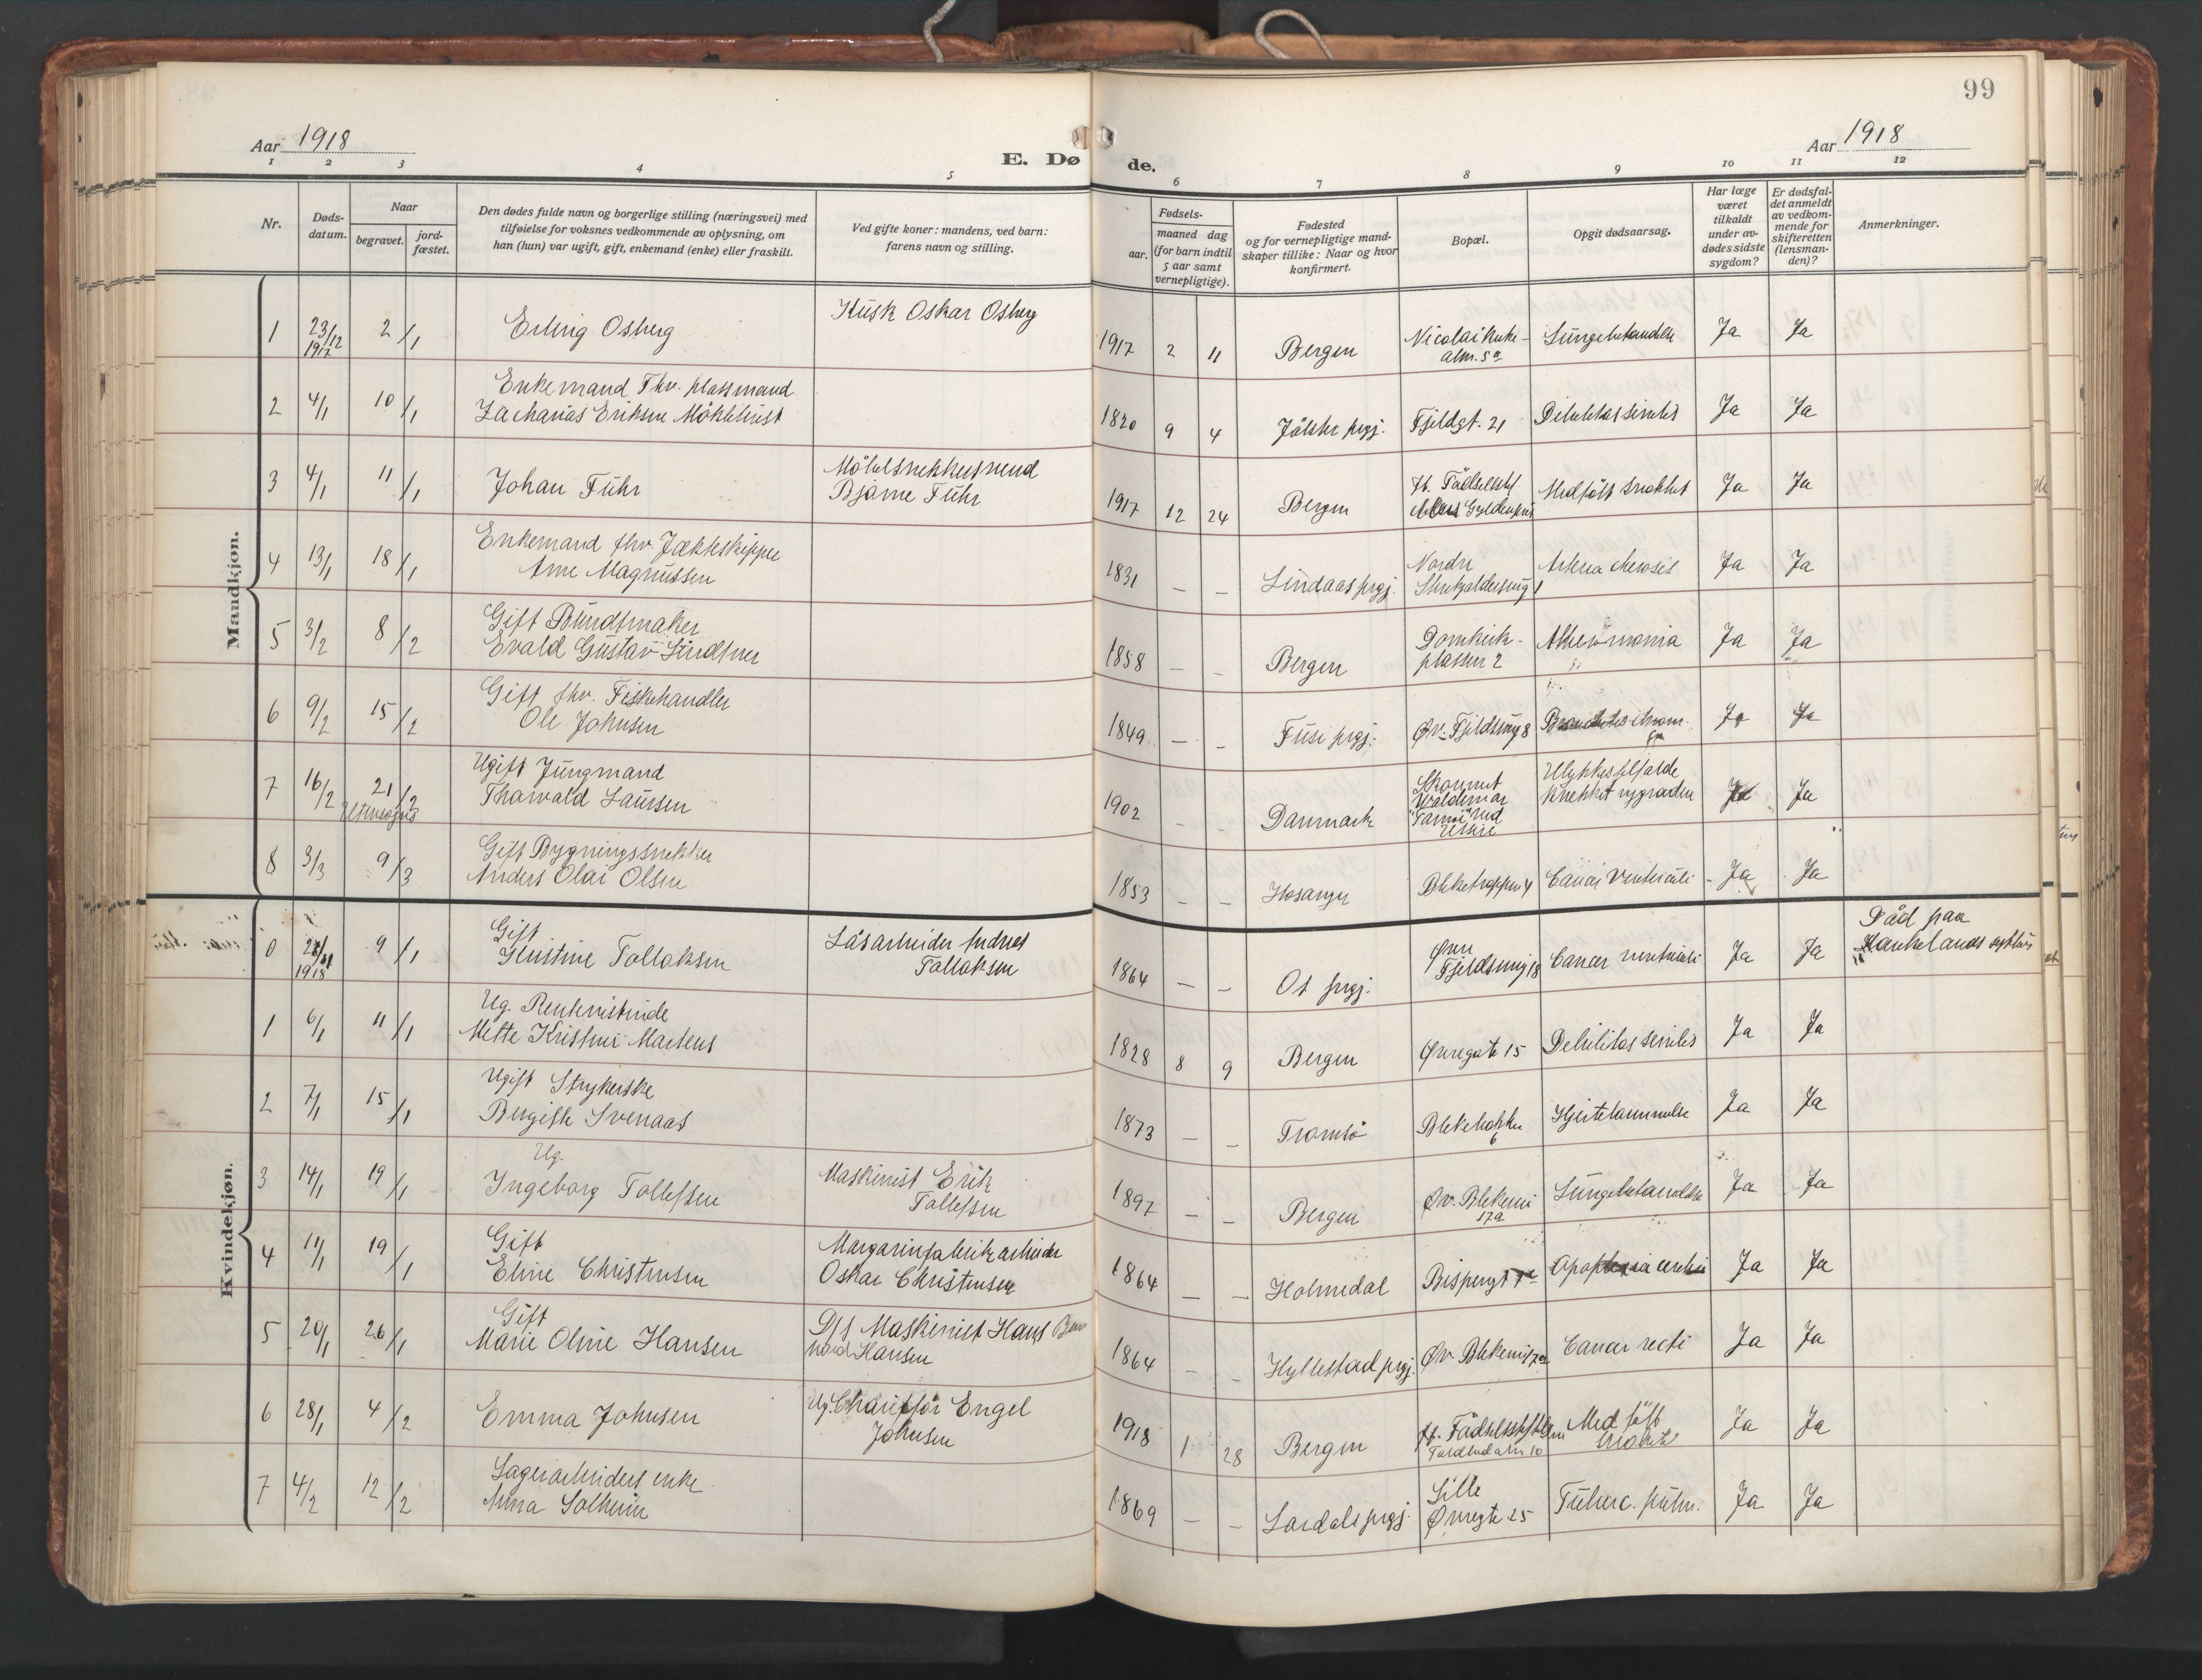 99
Aar 1918
E. Døde.
Aar 1918
1 2 3 4 5 6 7 8 9 10 11 12
Nr.
Døds-
datum.
Naar
begravet.
jord-
fæstet.
Den dødes fulde navn og borgerlige stilling (næringsvei) med
tilføielse for voksnes vedkommende av oplysning, om
han (hun) var ugift, gift, enkemand (enke) eller fraskilt.
Ved gifte koner: mandens, ved barn:
farens navn og stilling.
Fødsels-
aar.
maaned dag
(for barn indtil
5 aar samt
vernepligtige).
Fødested
og for vernepligtige mand-
skaper tillike: Naar og hvor
konfirmert.
Bopæl.
Opgit dødsaarsag.
Har læge
været
tilkaldt
under av-
dødes sidste
sygdom?
Er dødsfal-
det anmeldt
av vedkom-
mende for
skifteretten
(lensman-
den)?
Anmerkninger.
Mandkjøn.
1 23/12 1917 2/1 Erling Osberg Kusk Oskar Osberg 1917 2 11 Bergen Nicolaikirke-
alm. 5a Lungebetændelse Ja Ja
2 4/1 10/1 Enkemand Fhv. plassmand
Zacharias Eriksen Møklebust 1820 9 4 Jølster prgj. Fjeldgt. 21 Debilitas senilis Ja Ja
3 4/1 11/1 Johan Führ Møbelsnekkersvend
Bjarne Führ 1917 12 24 Bergen ft. Fødselsst. Medfødt svakhet Ja Ja
4 13/1 18/1 Enkemand fhv. Jækteskipper
Arne Magnussen 1831 – – Lindaas prgj. Nordre
1 Ja Ja
5 3/2 8/2 Gift Bundtmaker
Evald Gustav Lindtner 1858 – – Bergen Domkirk-
plassen 2 Ja Ja
6 9/2 15/2 Gift fhv. Fiskehandler
Ole Johnsen 1849 – – Fuse prgj. Øv. Fjeldsmug 8 Ja Ja
7 16/2 21/2 Ugift Jungmand
Thorvald Laursen 1902 – – Danmark Skonnert
Waldemar
ved
Utsire Ulykkestilfælde
knekket rygraden Ja Ja
8 3/3 9/3 Gift Bygningssnekker
Anders Olai Olsen 1853 – – Hosanger Bleketroppen 4 Cancer Ventriculi Ja Ja
Kvindekjøn.
0 1918 9/1 Gift
Kristine Tollaksen Løsarbeider Andreas
Tollaksen 1864 – – Os prgj. Øvre
Fjeldsmug 18 Cancer ventriculi Ja Ja Død paa
Haukelands sykehus
1 6/1 11/1 Ug. Rentenistinde
Mette Kristine Martens 1828 8 9 Bergen Øvregate 15 Debilitas senilis Ja Ja
2 7/1 15/1 Ugift Strykerske
Bergithe Svenaas 1873 – – Tromsø 6 Hjertelammelse Ja Ja
3 14/1 19/1 Ug.
Ingeborg Tollefsen Maskinist Erik
Tollefsen 1897 – – Bergen Øv. Blekevei
17a Lungebetændelse Ja Ja
4 11/1 19/1 Gift
Eline Christensen Margarinfabrikarbeider
Oskar Christensen 1864 – – Holmedal Apoplexia cerebri Ja Ja
5 20/1 26/1 Gift
Marie Oline Hansen D/s Maskinist Hans Bern
hard Hansen 1864 – – Hyllestad prgj. Øv. Blekevei 17a Cancer recti Ja Ja
6 28/1 4/2 Emma Johnsen Ug. Chauffør Engel
Johnsen 1918 1 28 Bergen ft. Fødselsstift.
10 Medfødt
svakhet Ja Ja
7 4/2 12/2 Lagerarbeiders enke
Anna Solheim 1869 – – Lærdals prgj. Lille
Øvregt. 25 Tuberc. pulm. Ja Ja